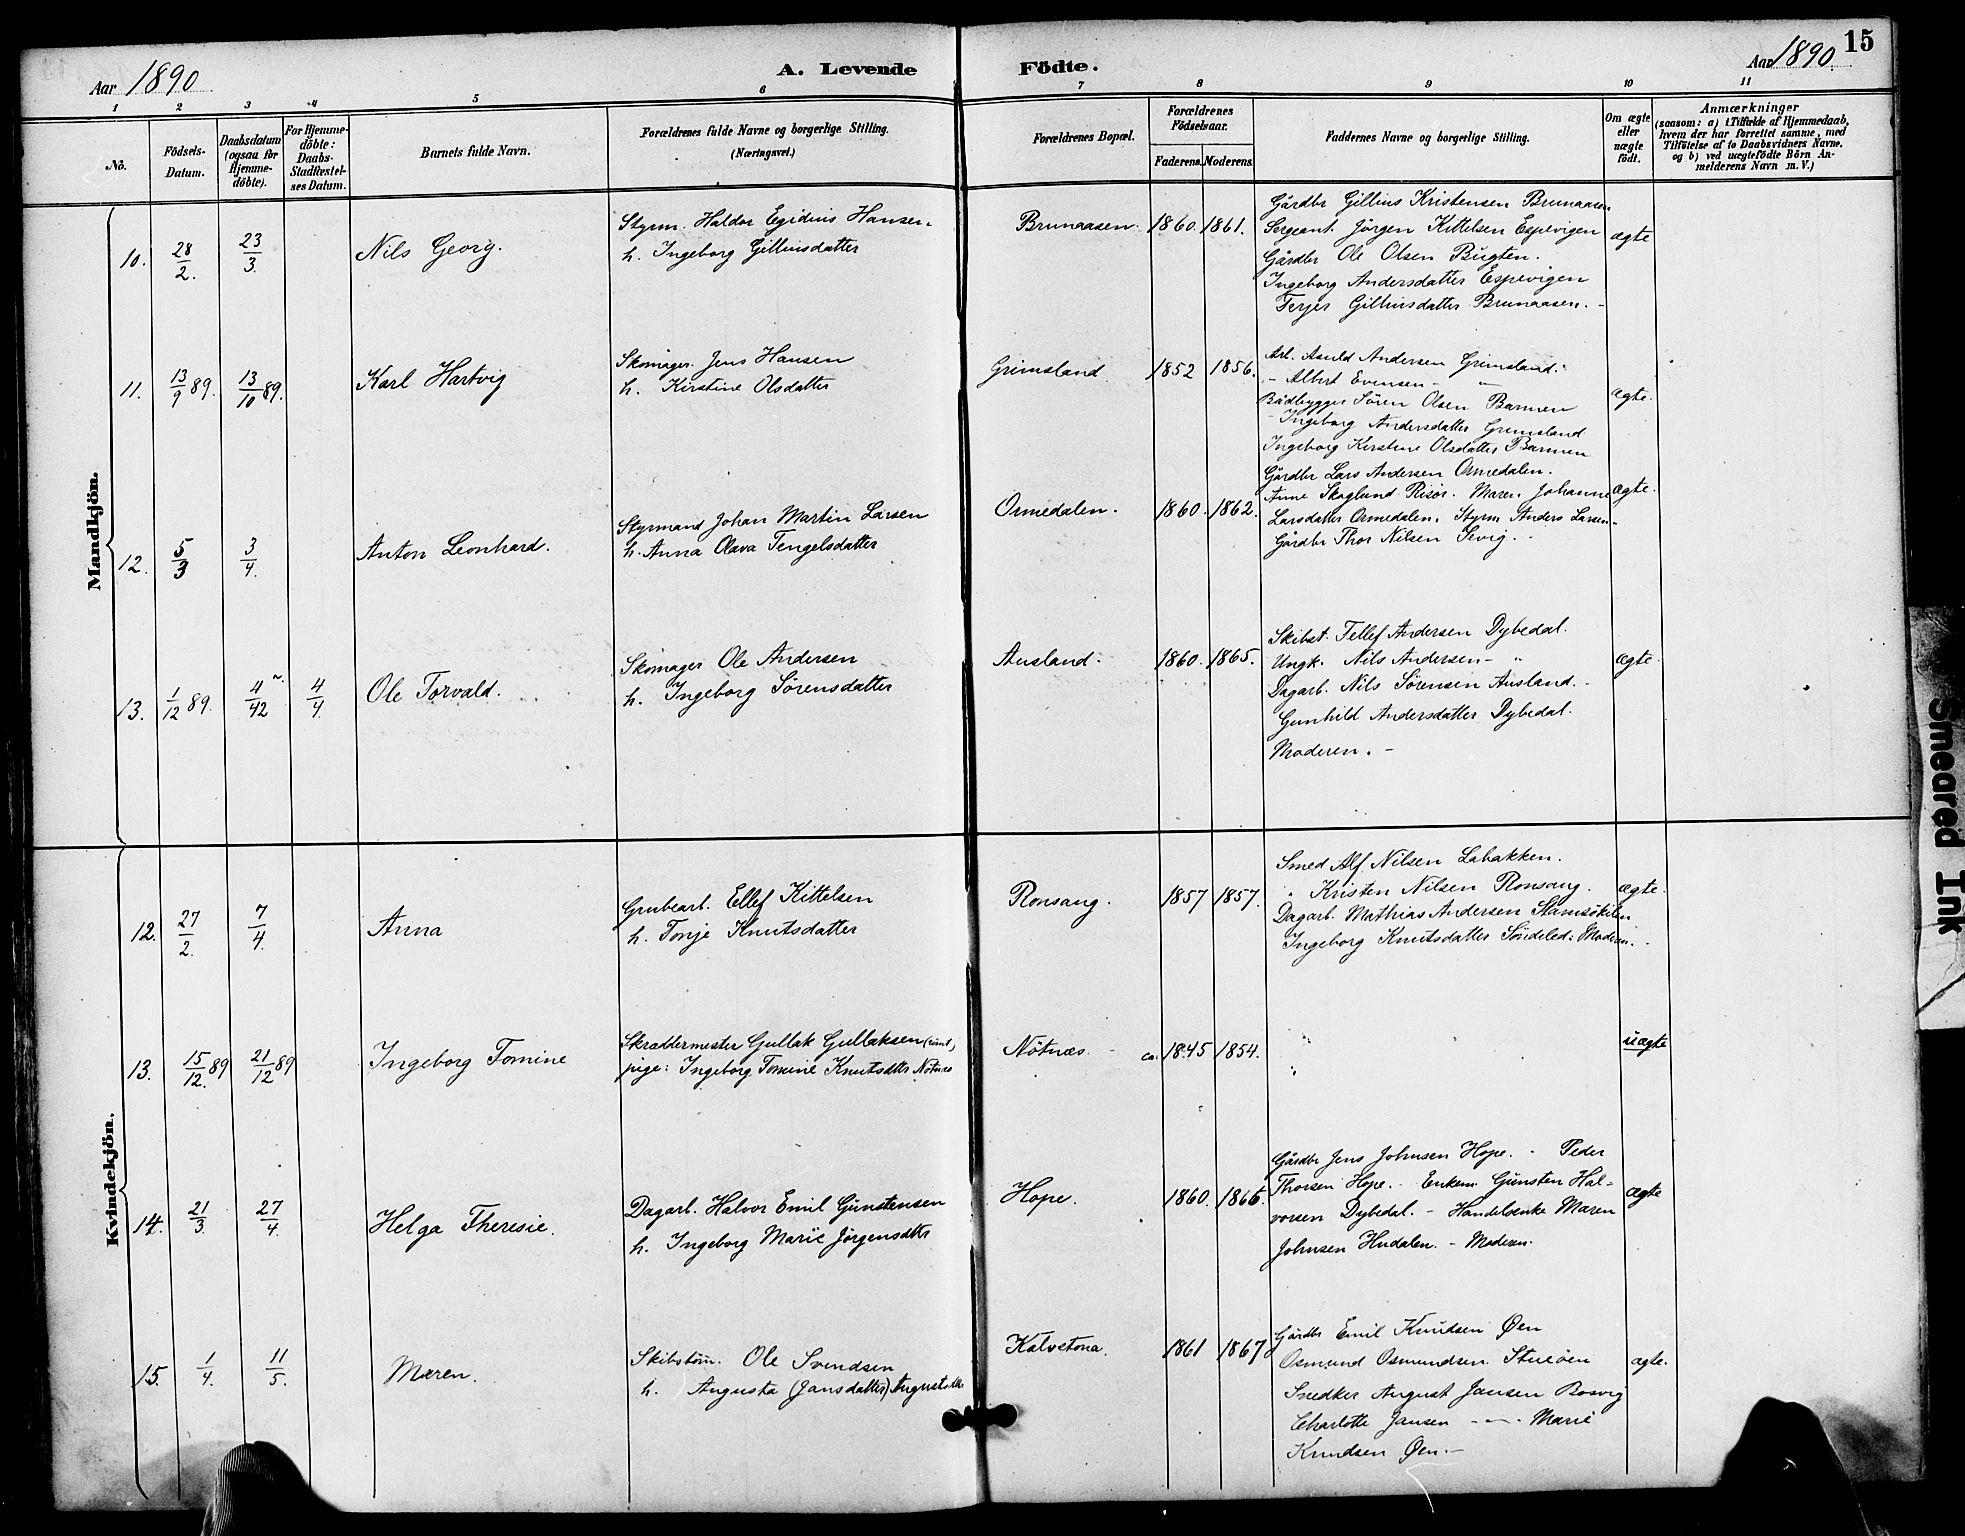 Aar 1890
A. Levende Födte.
Aar 1890.
15
1 2 3 4 5 6 7 8 9 10 11
No.
Födsels-Datum.
Daabsdatum (ogsaa for Hjemme-döbte).
For Hjemme-döbte: Daabs-Stadfæstel-ses Datum.
Barnets fulde Navn.
Forældrenes fulde Navne og borgerlige Stilling.
(Næringsvei.)
Forældrenes Bopæl.
Forældrenes Födselsaar.
Faderens. Moderens.
Faddernes Navne og borgerlige Stilling.
Om ægte eller uægte födt.
Anmærkninger
(saasom: a) i Tilfælde af Hjemmedaab,
hvem der har forrettet samme, med
Tilföielse af to Daabsvidners Navne,
og b) ved uægtefödte Börn An-
melderens Navn m. V.)
Mandkjön.
10. 28/2. 23/3. Nils Georg.
Styrm. Haldor Egidius Hansen.
h. Ingeborg Gilliusdatter
Brunaasen. 1860. 1861.
Gårdbr Gillius Kristensen Brunaasen
Sergeant. Jörgen Kittelsen Espevigen
Gårdbr Ole Olsen Bugten.
Ingeborg Andersdatter Espevigen
Terjer Gilliusdatter Brunaasen. -
ægte
11. 13/9 89. 13/10 89. Karl Hartvig
Skomager. Jens Hansen
h. Kirstine Olsdatter
Grimsland 1852 1856.
Arb. Asuld Andersen Grimsland.
- Albert Evensen - "
Bådbygger Sören Olsen Barmen
Ingeborg Andersdatter Grimsland
Ingeborg Kirstine Olsdatter Barmen
ægte.
12. 5/3 3/4. Anton Leonhard.
Styrmand Johan Martin Larsen
h. Anna Olava Tengelsdatter
Ormedalen. 1860. 1862.
Gårdbr Lars Andersen Ormedalen.
Anne Skoglund Risör. Maren Johanne
Larsdatter Ormedalen. Styrm Anders Larsen.
Gårdbr Thor Nilsen Sevig. -
ægte.
13. 1/12 89. 4/42 4/4 Ole Torvald.
Skomager Ole Andersen
h. Ingeborg Sörensdatter
Ausland. 1860. 1865.
Skibst. Tellef Andersen Dybedal.
Ungk. Nils Andersen - "
Dagarb. Nils Sörensen Ausland. -
Gunhild Andersdatter Dybedal.
Moderen. -
ægte.
Kvindekjön.
12. 27/2. 7/4. Anna
Grubearb. Ellef Kittelsen
h. Tonje Knutsdatter
Ronsang. 1857 1857.
Smed Alf Nilsen Labakken.
" Kristen Nilsen Ronsang.
Dagarb. Mathias Andersen Stamsökilen
Ingeborg Knutsdatter Söndeled: Moderen.
ægte.
13. 15/12. 89 21/12 89 Ingeborg Tomine
Skræddermester Gullak Gullaksen
pige: Ingeborg Tomine Knutsdtr Nötnæs
Nötnæs - ca. 1845 1854.
uægte
14. 21/3 27/4. Helga Theresie.
Dagarb. Halvor Emil Gunstensen
h. Ingeborg Marie Jörgensdtr
Hope. 1860. 1866.
Gårdbr Jens Johnsen Hope. - Peder
Thorsen Hope. - Enkem. Gunsten Hal-
vorsen Dybedal. - Handelsenke Maren
Johnsen Hudalen. - Moderen.
ægte
15. 1/4. 11/5. Maren.
Skibstöm. Ole Svendsen
h. Augusta (Jansdatter) Augustsdtr
Kalvetona. 1861 1867
Gårdbr Emil Knudsen Øen
Osmund Osmundsen Stueöen
Snedker August Jansen Bosvig
Charlotte Jansen - " - Marie
Knudsen Øen. -
ægte.
Smeared Ink